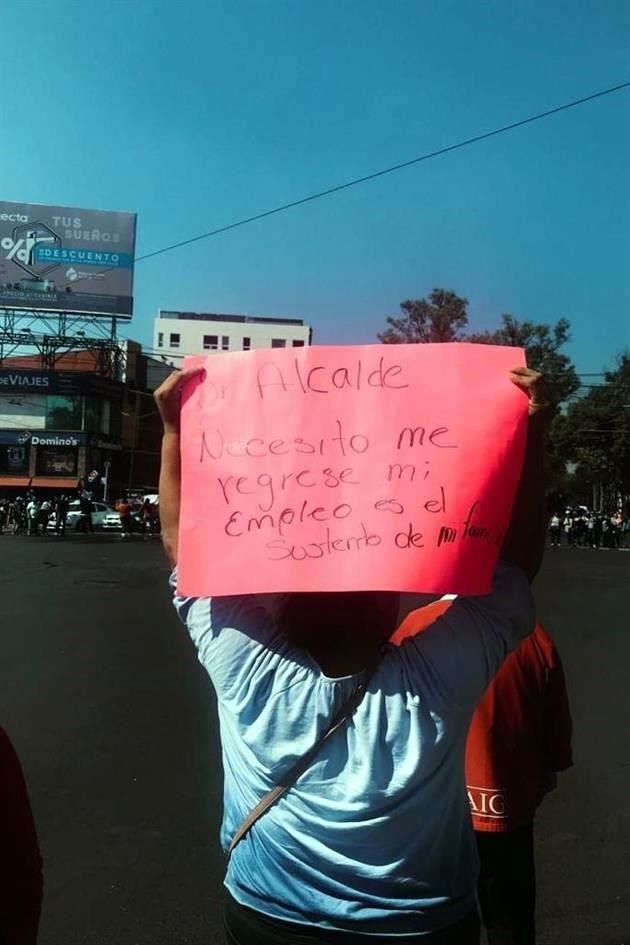 ecta TUS
SUEÑOS
%
DESCUENTO
DE VIAJES
Domino's
Sr Alcalde
Necesito me
regrese mi
Empleo es el
Sustento de mi fami
AIG